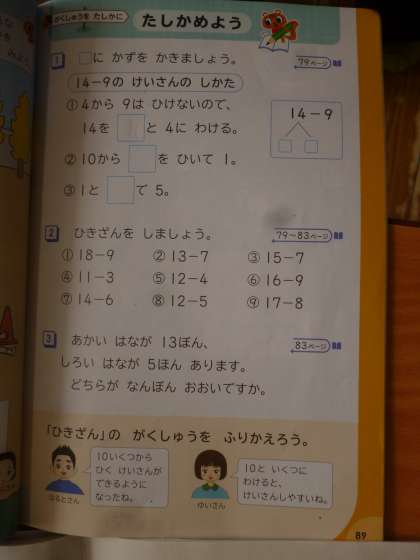 がくしゅうを たしかに
たしかめよう
1 □に かずを かきましょう。
79ページ
14-9の けいさんの しかた
① 4から 9は ひけないので、
14を □ と 4に わける。
14-9
② 10から □ を ひいて 1。
③ 1と □ で 5。
2 ひきざんを しましょう。
79~83ページ
① 18-9 ② 13-7 ③ 15-7
④ 11-3 ⑤ 12-4 ⑥ 16-9
⑦ 14-6 ⑧ 12-5 ⑨ 17-8
3 あかい はなが 13ぼん、
83ページ
しろい はなが 5ほん あります。
どちらが なんぼん おおいですか。
「ひきざん」の がくしゅうを ふりかえろう。
10いくつから
ひく けいさんが
できるように
なったね。
はるとさん
10と いくつに
わけると、
けいさんしやすいね。
ゆいさん
89